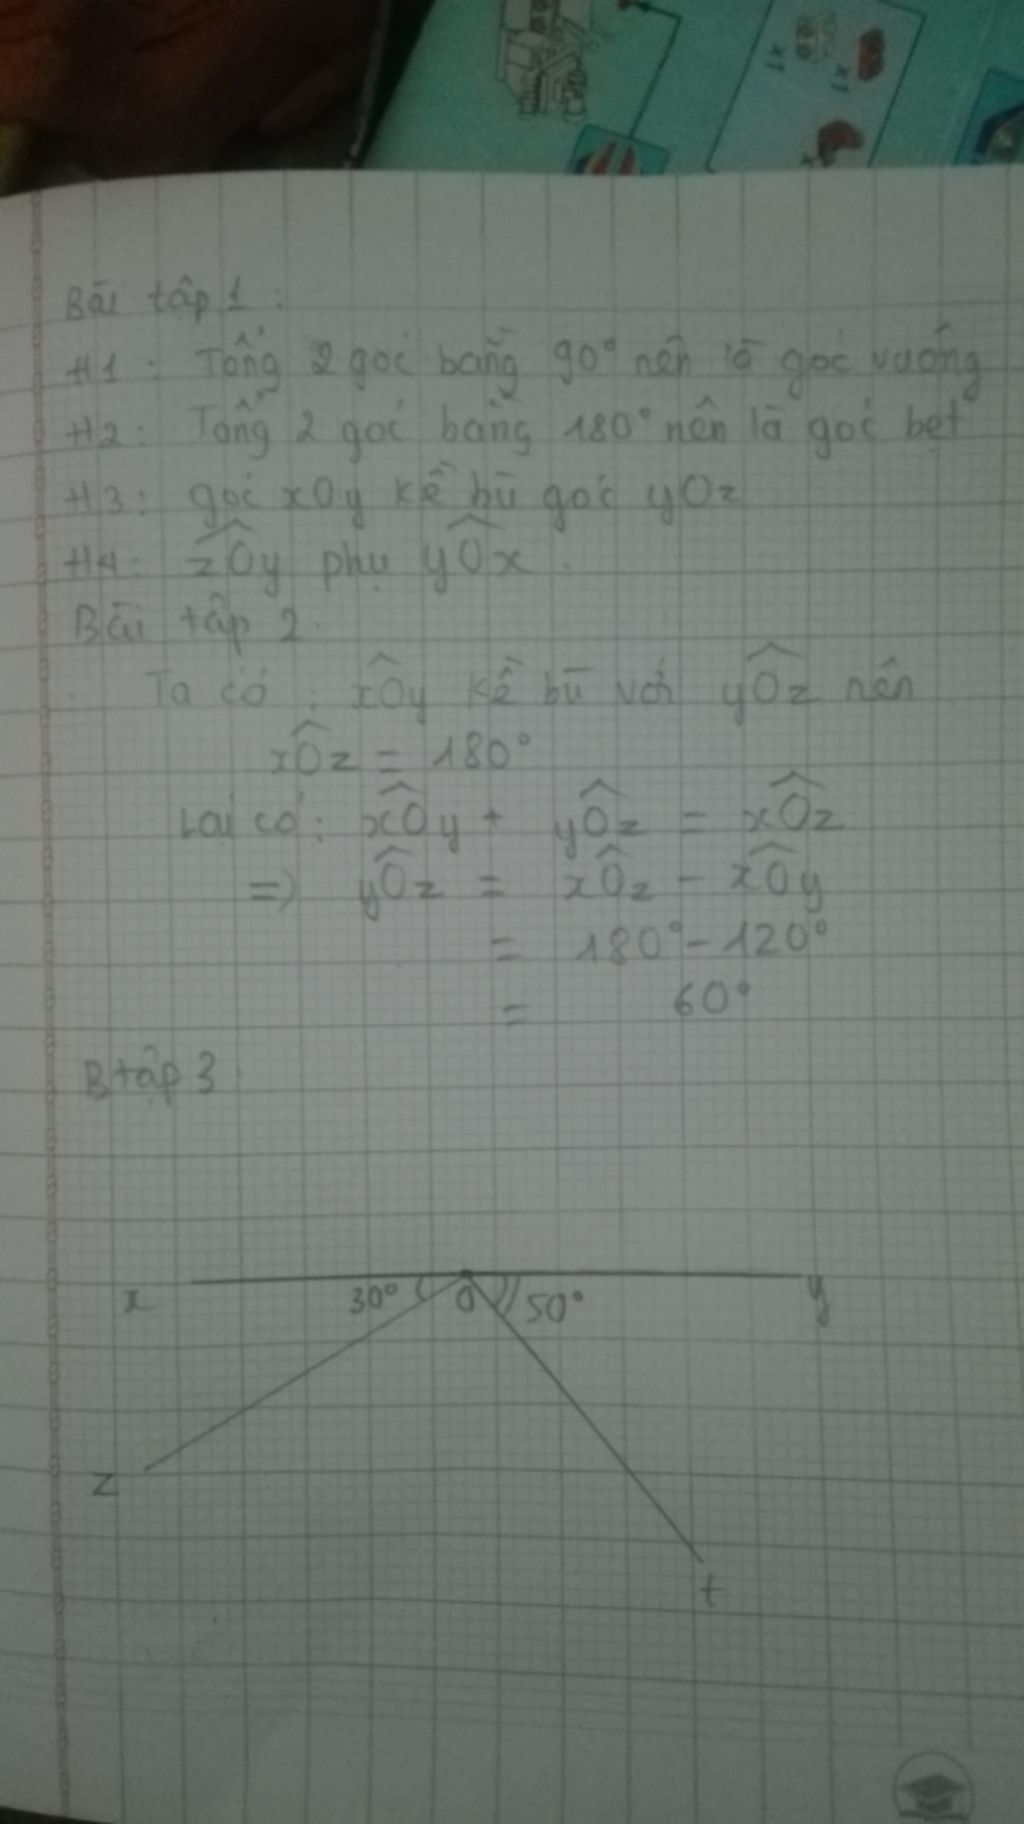 1x
1x
Bài tập 1 :
H1 : Tổng 2 góc bằng 90° nên là góc vuông
H2 : Tổng 2 góc bằng 180° nên là góc bẹt
H3 : góc xOy kề bù góc yOz
H4 : zÔy phụ yÔx .
Bài tập 2.
Ta có : xÔy kề bù với yÔz nên
xÔz = 180°
Lại có : xÔy + yÔz = xÔz
=> yÔz = xÔz - xÔy
= 180° - 120°
= 60°
B tập 3
x 30° O 50° y
z
t